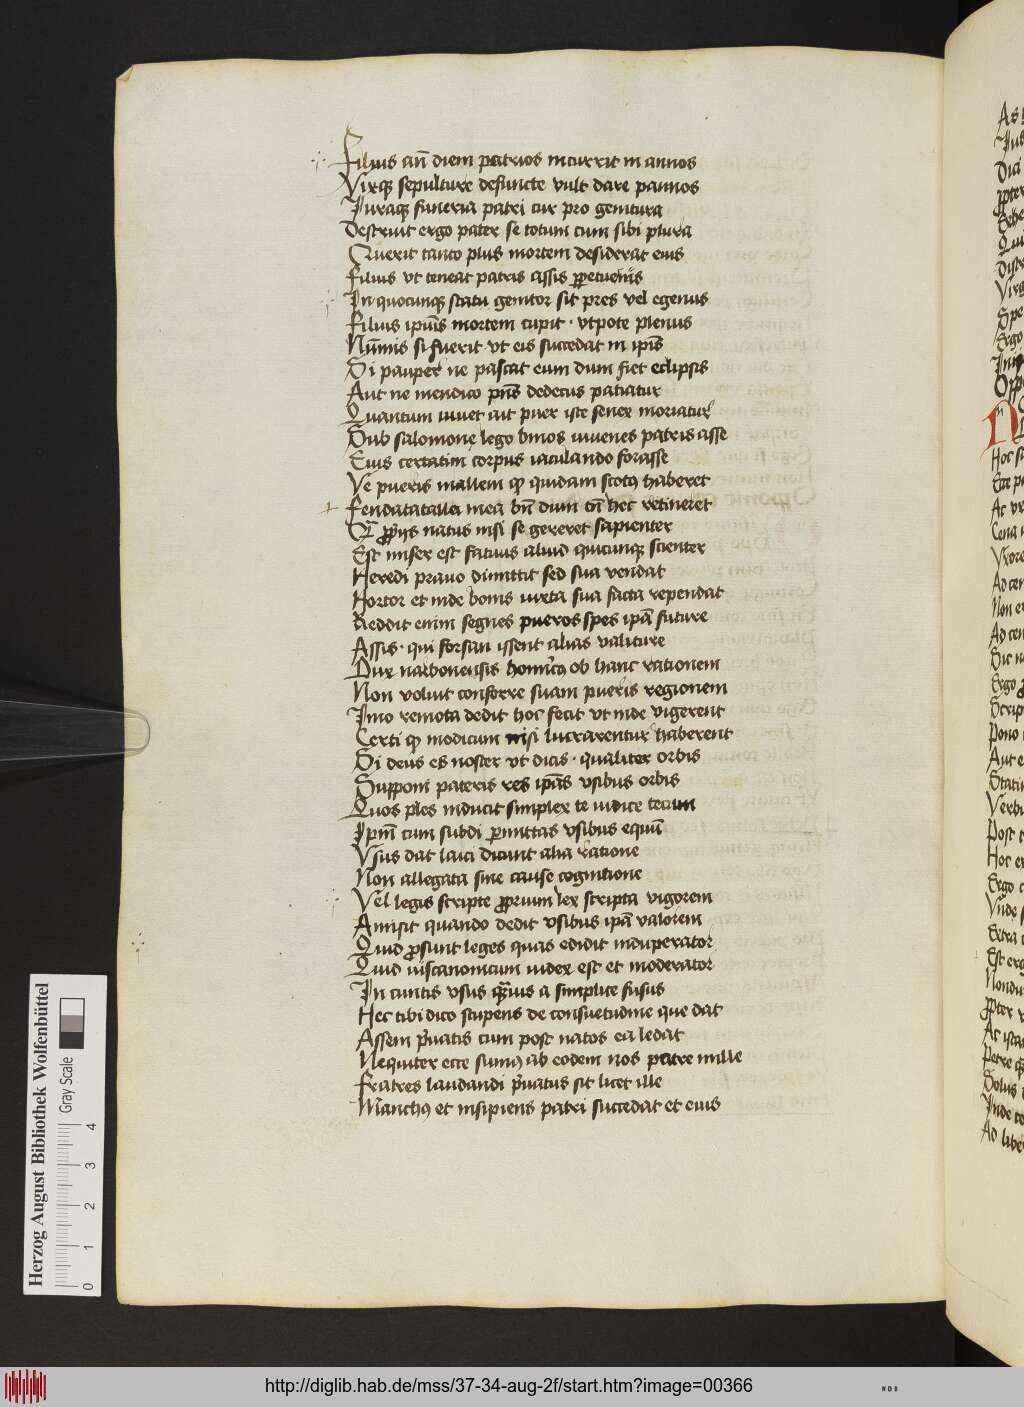 Filius an̄ diem patrios incurrit in annos
Virq; sepulture defuncte vult dare pannos
Juraq; funeria patri cur pro genitura
Destruit ergo pater se totum cum sibi plura
Querit tanto plus mortem desiderat eius
Filius vt teneat patris assis
In quocunq; statu genitor sit p̄res vel egenus
Filius ipius mortem cupit · vtpote plenus
Nūmis si fuerit vt eis succedat in ip̄is
Si pauper ne pascat eum dum fiet eclipsis
Aut ne mendico pn̄s dedecus patiatur
Quantum viuet ait puer iste senex moriatur
Sub salomone lego binos iuuenes patris asse
Eius certatim corpus iaculando forasse
Ve pueris mallem q; quidam scotꝯ haberet
mea bn̄ dum hec retineret
natus nisi se gereret sapienter
Est miser est fatuus aliud quicunq; scienter
Heredi prauo dimittit sed sua vendat
Hortor et inde bonis iuxta sua facta rependat
Reddit enim segnes pueros spes ip̄a future
Assis · qui forsan issent alias valiture
Dux narbonensis ob hanc rationem
Non voluit conferre suam pueris regionem
Imo remota dedit hoc fecit vt inde vigerent
Certi q; modicum nisi lucrarentur haberent
Si deus es noster vt dicis · qualiter orbis
Supponi pateris res ip̄as vsibus orbis
Quos ples inducit simplex te iudice tecum
Ip̄m cum subdi permittas vsibus equū
Vsus dat laici dicunt alia ratione
Non allegata sine cause cognitione
Vel legis scripte ꝓprium lex scripta vigorem
Amisit quando dedit vsibus ip̄a valorem
Quid ꝓsunt leges quas edidit induperator
Quid iuscanonicum iudex est et moderator
In cunctis vsus q̄uis a simplice fusus
Hec tibi dico stupens de consuetudine que dat
Assem p̄uatis cum post natos ea ledat
Nequiter ecce sumꝯ ab eodem nos patre mille
Fratres laudandi p̄uatus sit licet ille
Manchꝯ et insipiens patri succedat et eius
Herzog August Bibliothek Wolfenbüttel
Gray Scale
0 1 2 3 4
http://diglib.hab.de/mss/37-34-aug-2f/start.htm?image=00366